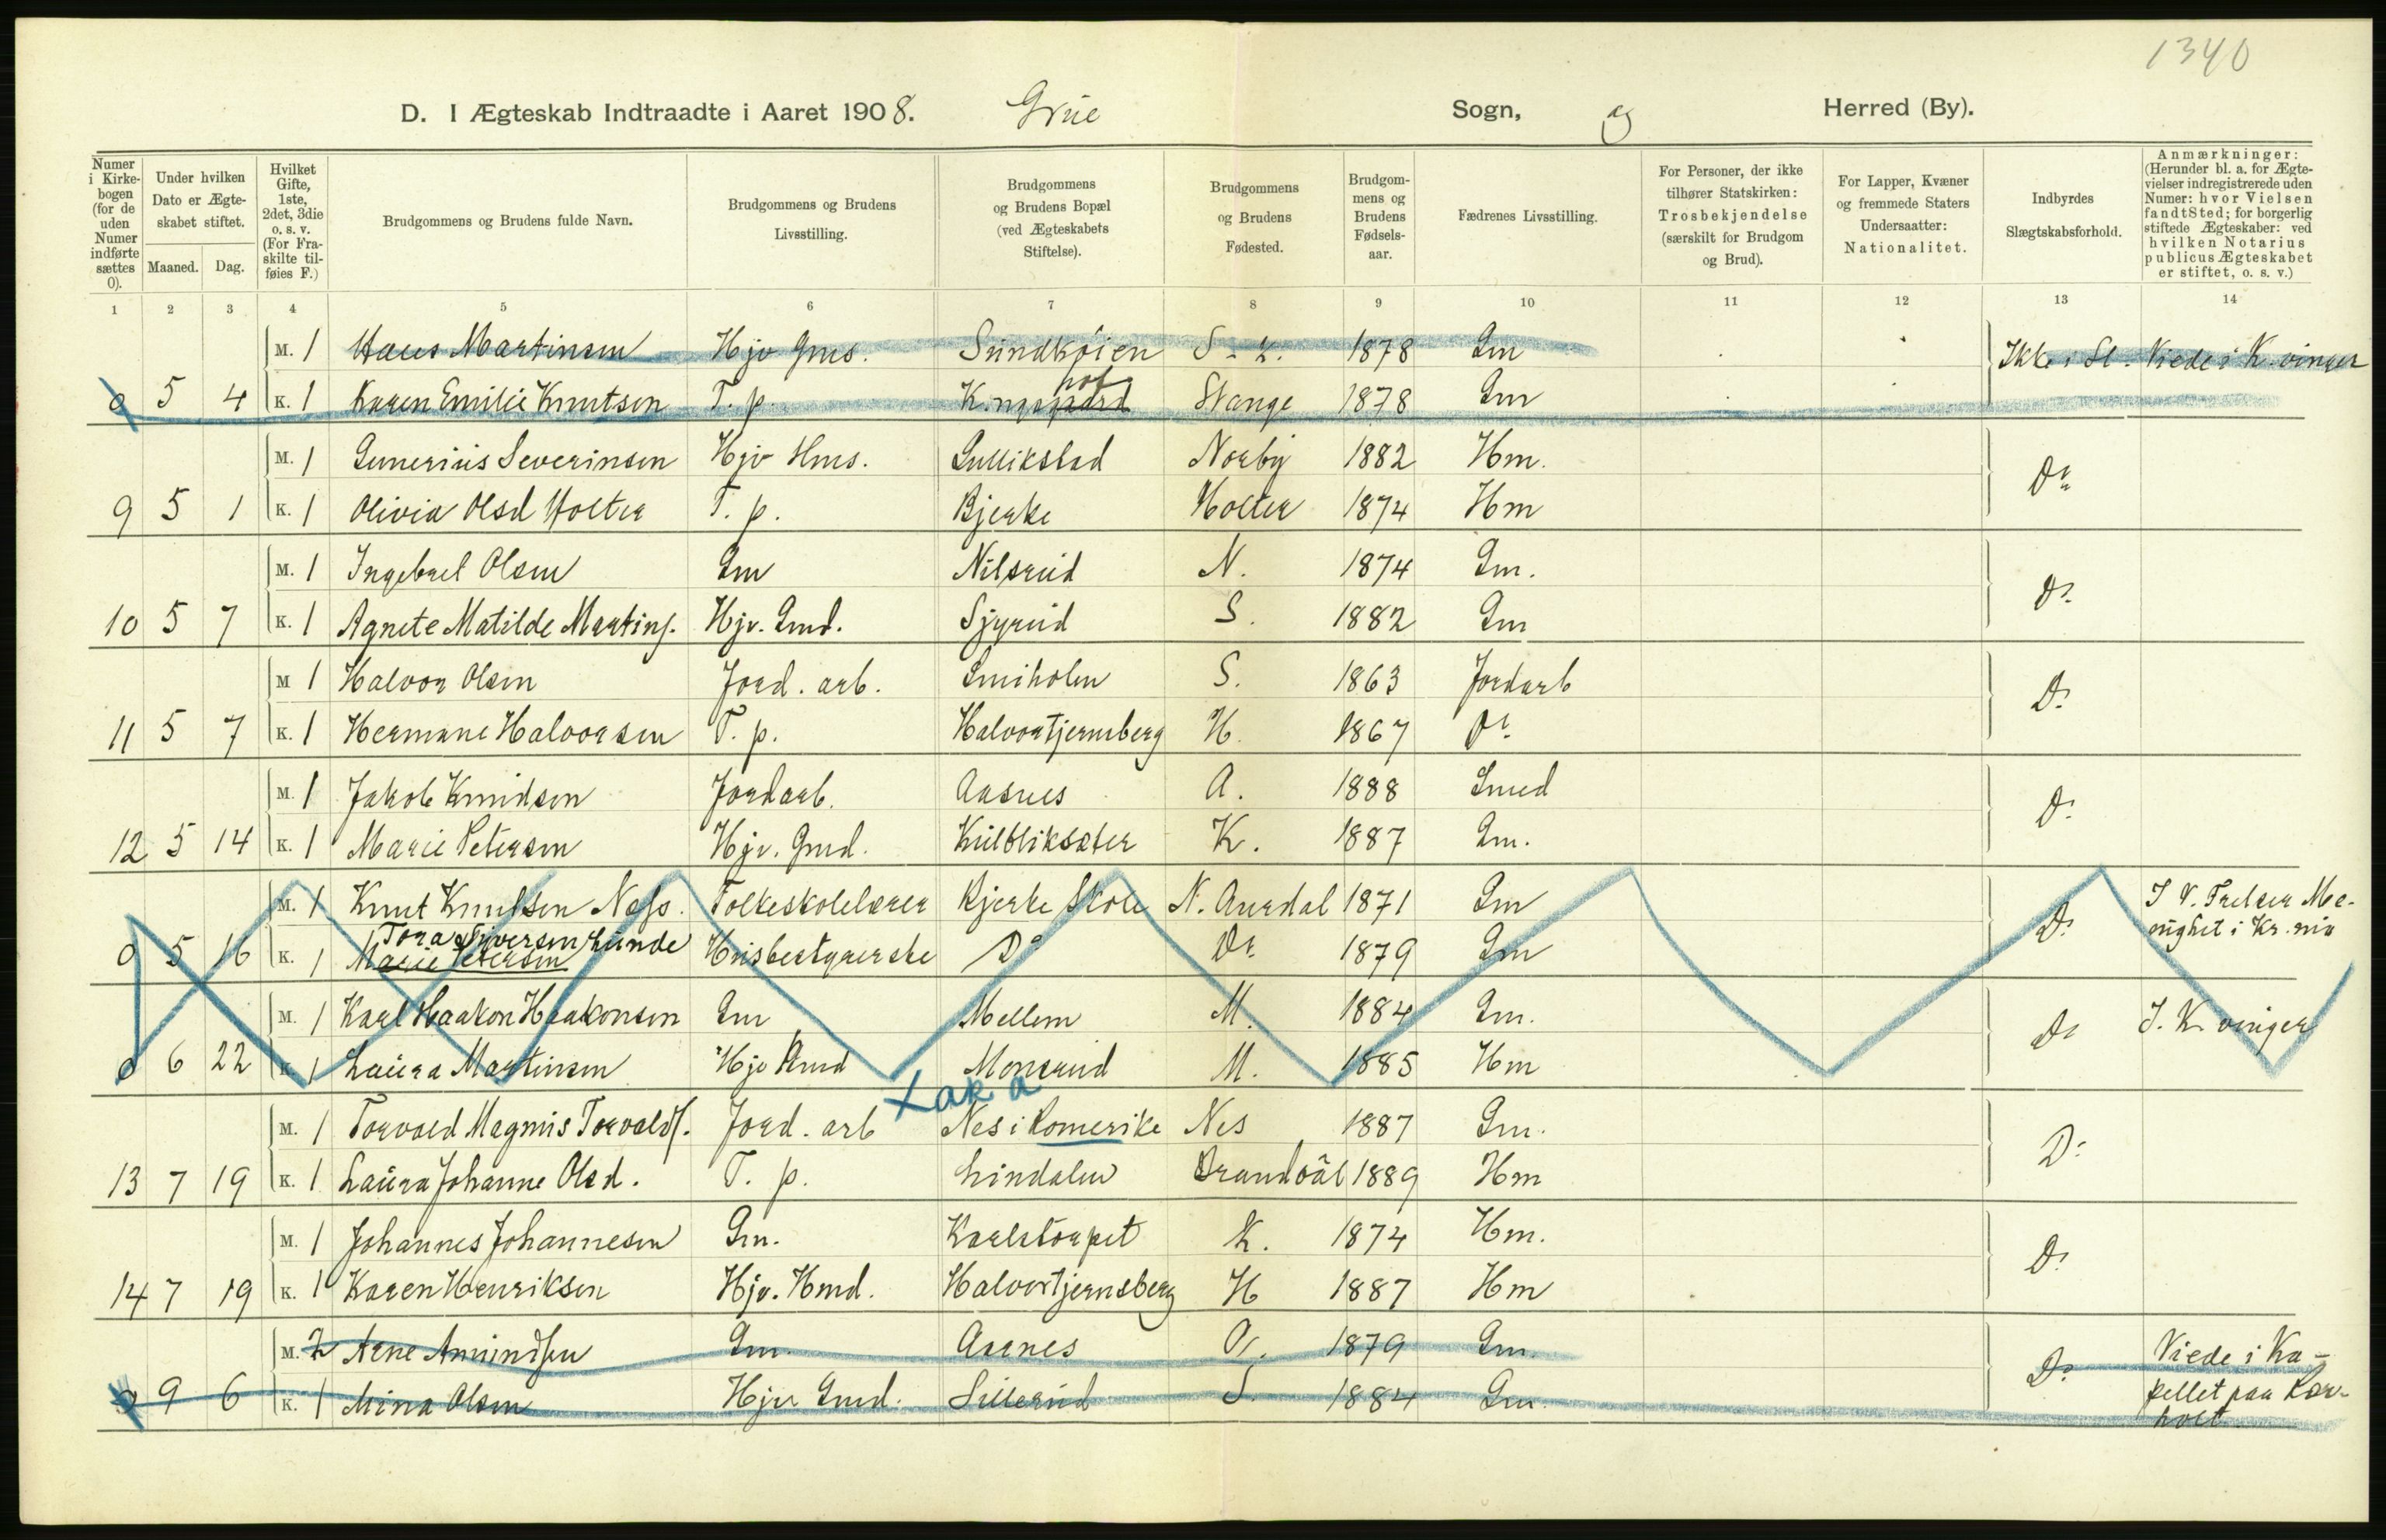 1340
D. I Ægteskab Indtraadte i Aaret 1908. Grue Sogn, og Herred (By).
Numer i Kirkebogen (for de uden Numer indførte sættes 0).
Under hvilken Dato er Ægteskabet stiftet.
Maaned. Dag.
Hvilket Gifte, 1ste, 2det, 3die o. s. v. (For Fraskilte tilføies F.)
Brudgommens og Brudens fulde Navn.
Brudgommens og Brudens Livsstilling.
Brudgommens og Brudens Bopæl (ved Ægteskabets Stiftelse).
Brudgommens og Brudens Fødested.
Brudgommens og Brudens Fødselsaar.
Fædrenes Livsstilling.
For Personer, der ikke tilhører Statskirken: Trosbekjendelse (særskilt for Brudgom og Brud).
For Lapper, Kvæner og fremmede Staters Undersaatter: Nationalitet.
Indbyrdes Slægtskabsforhold.
Anmærkninger: (Herunder bl. a. for Ægtevielser indregistrerede uden Numer: hvor Vielsen fandt Sted; for borgerlig stiftede Ægteskaber: ved hvilken Notarius publicus Ægteskabet er stiftet, o. s. v.)
1 2 3 4 5 6 7 8 9 10 11 12 13 14
M. 1 Hans Martinsen Hjv Gms. Sundkøien 1878 Gm Ikke i Sl. Viede i K.vinger
0 5 4 K. 1 Karen Emilie Knutsen T. p. Stange 1878 Gm
M. 1 Gunerius Severinsen Hjv Hms. Gullikstad Norby 1882 Hm. Do
9 5 1 K. 1 Olivia Olsd Holter T. p. Bjerke Holter 1874 Hm
M. 1 Ingebret Olsen Gm Nilsrud N. 1874 Gm. Do
10 5 7 K. 1 Agnete Matilde Martins. Hjv. Gmd. S. 1882 Gm
M 1 Halvor Olsen Jord. arb. Smiholen S. 1863 Jordarb Do
11 5 7 K. 1 Hermane Halvorsen T. p. Halvortjernsberg H. 1867 Do
M. 1 Jakob Knudsen Jordarb. Aasnes A. 1888 Smed Do
12 5 14 K. 1 Marie Petersen Hjv. Gmd. Kulbliksæter K. 1887 Gm.
M. 1 Knut Knutsen Næss. Folkeskolelærer Bjerke Skole N. Aurdal 1871 Gm Do I V. Frelser Me-
0 5 16 K. 1 Marie Petersen Tora Siversen Lunde Husbestyrerske Do Do 1879 Gm nighet i Kr.nia
M. 1 Karl Haakon Haakonsen Gm Mellem M. 1884 Gm. Do I. K vinger
0 6 22 K. 1 Laura Martinsen Hjv Hmd Monsrud M. 1885 Hm
M. 1 Torvald Magnus Torvalds. Jord. arb Nes i Romerike Nes 1887 Gm. Do
13 7 19 K. 1 Laura Johanne Olsd. T. p. Lindalen Brandvål 1889 Hm
M. 1 Johannes Johannesen Gm. Karlstorpet K. 1874 Hm. Do
14 7 19 K. 1 Karen Henriksen Hjv. Hmd. Halvortjernsberg H 1887 Hm
M. 2 Arne Amundsen Gm. Aasnes 1879 Gm. Do Viede i Ka-
0 9 6 K. 1 Mina Olsen Hjv Gmd. Sillerud S. 1884 Gm. pellet paa Kor-
holt